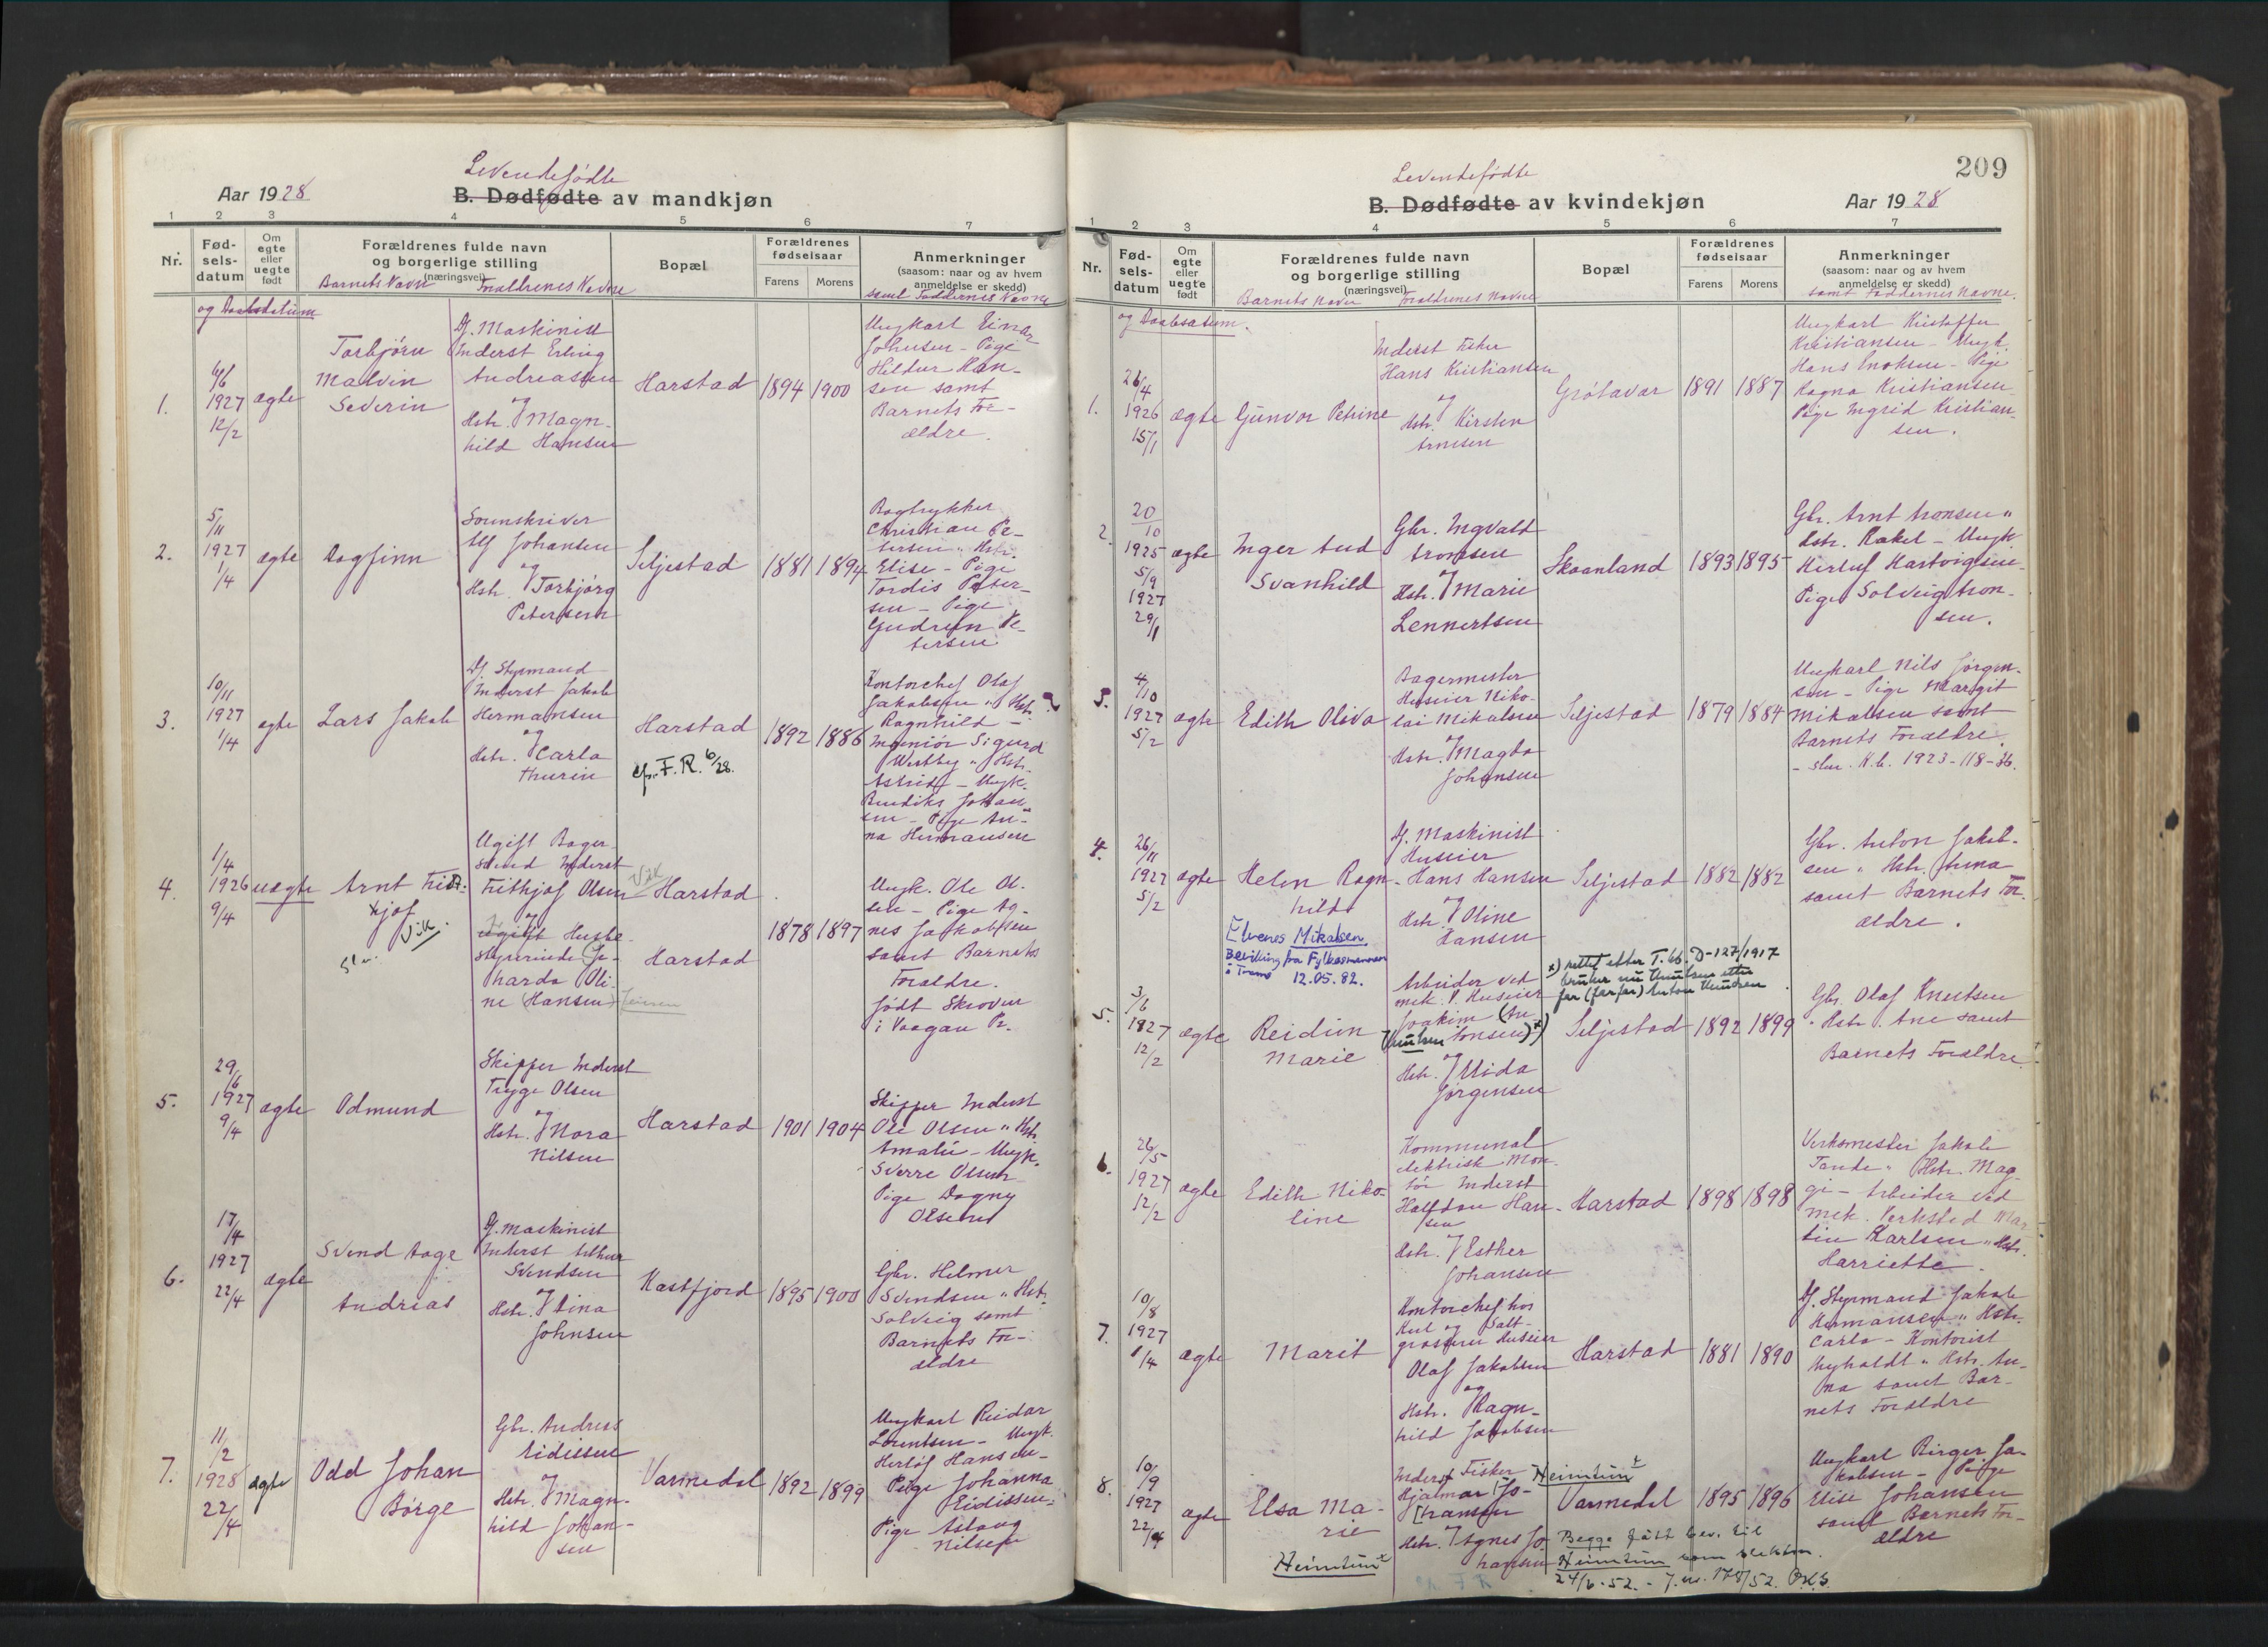 Levendefødte
Aar 1928
B. Dødfødte av mandkjøn
1 2 3 4 5 6 7
Nr.
Fød-
sels-
datum
Om
egte
eller
uegte
født
Forældrenes fulde navn
og borgerlige stilling
(næringsvei)
Barnets Navn Forældrenes Navne
Bopæl
Forældrenes
fødselsaar
Farens Morens
Anmerkninger
(saasom: naar og av hvem
anmeldelse er skedd)
samt Faddernes Navne
og Daabsdatum
1.
4/6
1927
12/2
ægte
Torbjørn
Malvin
Severin
Df. Maskinist
Inderst Erling
Andreassen
og
Hstr. Magn-
hild Hansen
Harstad
1894 1900
Ungkarl Einar
Johnsen - Pige
Hildur Han-
sen samt
Barnets For-
ældre.
2.
5/11
1927
1/4
ægte
Dagfinn
Sorenskriver
Alf Johansen
og
Hstr. Torbjørg
Petersen
Seljestad
1881 1894
Bogtrykker
Christian Pe-
tersen " Hstr.
Elise - Pige
Tordis Peter-
sen - Pige
Gudrun Pe-
tersen
3.
10/11
1927
1/4
ægte
Lars Jakob
Df. Styrmand
Inderst Jakob
Hermansen
og
Hstr. Carla
Thurin
Harstad
cfr. F. R. 6/28.
1892 1886
Kontorchef Olaf
Jakobsen " Hstr.
Ragnhild -
Ingeniør Sigurd
Westby " Hstr.
Astrid - Ungk.
Bendiks Johan-
sen - Pige An-
na Hermansen
4.
1/4
1926
9/4
uægte
Arnt Frit-
hjof
Vik.
Ugift Bager-
svend Inderst
Frithjof Olsen
Vik
og
ugift Hushe-
styrerinde Je-
harda Oli-
ne (Hansen) Jensen
Harstad
Harstad
1878 1897
Ungk. Ole Ol-
sen - Pige Ag-
nes Jakobsen
samt Barnets
Forældre.
født Skroven
i Vaagan Pr.
5.
29/6
1927
9/4
ægte
Odmund
Skipper Inderst
Trygve Olsen
og
Hstr. Nora
Nilsen
Harstad
1901 1904
Skipper Inderst
Ole Olsen " Hstr.
Amalie - Ungk.
Sverre Olsen
Pige Dagny
Olsen
6.
17/4
1927
22/4
ægte
Svend Aage
Andreas
Df. maskinist
Inderst Arthur
Svendsen
og
Hstr. Lina
Johnsen
Kastfjord
1895 1900
Gbr. Helmer
Svendsen " Hstr.
Solveig samt
Barnets For-
ældre
7.
11/2
1928
22/4
ægte
Odd Johan
Børge
Gbr. Andreas
Eidissen
og
Hstr. Magn-
hild Johan-
sen
Varmedal
1892 1899
Ungkarl Reidar
Lorentsen - Ungk.
Herlof Hansen -
Pige Johanna
Eidissen -
Pige Aslaug
Nilsen
209
Levendefødte
B. Dødfødte av kvindekjøn
Aar 1928
1 2 3 4 5 6 7
Nr.
Fød-
sels-
datum
Om
egte
eller
uegte
født
Forældrenes fulde navn
og borgerlige stilling
(næringsvei)
Barnets Navn Forældrenes Navne
Bopæl
Forældrenes
fødselsaar
Farens Morens
Anmerkninger
(saasom: naar og av hvem
anmeldelse er skedd)
samt Faddernes Navne.
og Daabsdatum.
1.
26/4
1926
15/1
ægte
Gunvor Petrine
Inderst Fisker
Hans Kristiansen
og
Hstr. Kirsten
Arntsen
Grøtavær
1891 1887
Ungkarl Kristoffer
Kristiansen - Ungk.
Hans Enoksen - Pige
Ragna Kristiansen
Pige Ingrid Kristian-
sen.
2.
20/10
1925
5/9
1927
29/1
ægte
Inger Aud
Svanhild
Gbr. Ingvald
Aronsen
og
Hstr. Marie
Lennertsen
Skaanland
1893 1895
Gbr. Arnt Aronsen "
Hstr. Rakel - Ungk.
Herluf Hartvigsen -
Pige Solveig Aron-
sen.
3.
4/10
1927
5/2
ægte
Edith Oliva
Bagermester
Huseier Niko-
lai Mikalsen
og
Hstr. Magda
Johansen
Seljestad
1879 1884
Ungkarl Nils Jørgen-
sen - Pige Margit
Mikalsen samt
Barnets Forældre.
- K.b. 1923-118-36.
4.
26/11
1927
5/2
ægte
Helen Ragn-
hild
Elvenes Mikalsen.
Bevilling fra Fylkesmannen
i Troms 12.05.82.
Df. Maskinist
Huseier
Hans Hansen
og
Hstr. Oline
Hansen
Seljestad
1882 1882
Gbr. Anton Jakob-
sen " Hstr. Anna
samt Barnets For-
ældre.
5.
3/6
1927
12/2
ægte
Reidun
Marie
Arbeider ved
mek. V. Huseier
Joakim (An-
tonsen) x)
Knutsen
og
Hstr. Alida
Jørgensen
x) rettet etter T.bb. D-127/1917
bruker nu Knutsen etter
far (farfar) Anton Knudsen
Seljestad
1892 1899
Gbr. Olaf Knutsen
" Hstr. Ane samt
Barnets Forældre.
6.
26/5
1927
12/2
ægte
Edith Niko-
line
Kommunal
elektrisk Mon-
tør Inderst
Halfdan Han-
sen
og
Hstr. Esther
Johansen
Harstad
1898 1898
Verksmester Jakob
Tande " Hstr. Mag-
gi - Arbeider ved
mek. Verksted Mar-
tin Karlsen " Hstr.
Harriette.
7.
10/8
1927
1/4
ægte
Marit
Kontorchef hos
Kul og Salt-
grosserer Huseier
Olaf Jakobsen
og
Hstr. Ragn-
hild Jakobsen
Harstad
1881 1890
Df. Styrmand Jakob
Hermansen " Hstr.
Carla - Kontorist
Nyholdt " Hstr. An-
na samt Bar-
nets Forældre
8.
10/9
1927
22/4
ægte
Elsa Ma-
rie
Heimtun
Inderst Fisker
Hjalmar Jo-
hansen
Heimtun
og
Hstr. Agnes Jo-
hansen
Varmedal
1895 1896
Begge fått bev. til
Heimtun som slektsn.
24/6-52. - J.nr. 178/52.
Ungkarl Birger Ja-
kobsen - Pige
Elise Johansen
samt Barnets For-
ældre